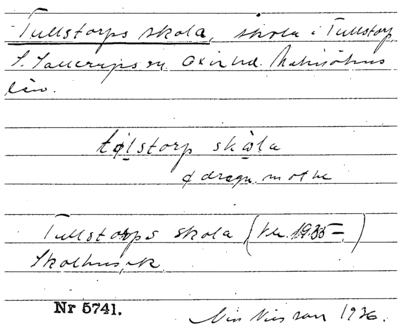 Tullstorps skola, skola i Tullstorp,
S. Sallerups sn Oxie hd. Malmöhus
län.
tølstorp skåla
ø dragn. mot
Tullstorps skola (
Nr 5741.
Nils Nilsson 1936.